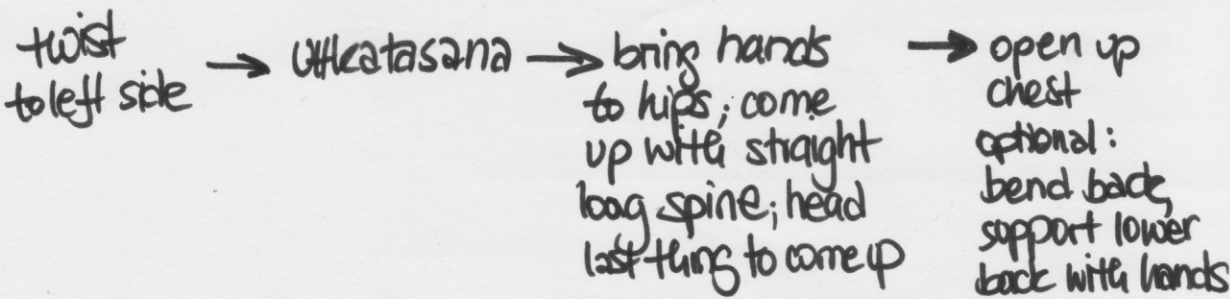 twist
to left side
→ Uttkatasana →
bring hands
to hips; come
up with straight
long spine; head
last thing to come up
→ open up
chest
optional:
bend back,
support lower
back with hands